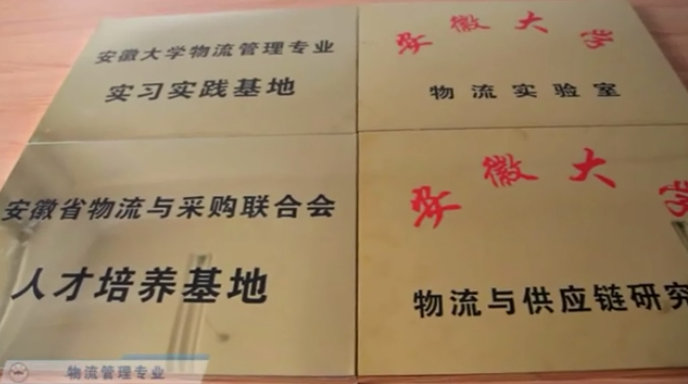 安徽大学物流管理专业
实习实践基地
安徽大学
物流实验室
安徽省物流与采购联合会
人才培养基地
安徽大学
物流与供应链研究
物流管理专业